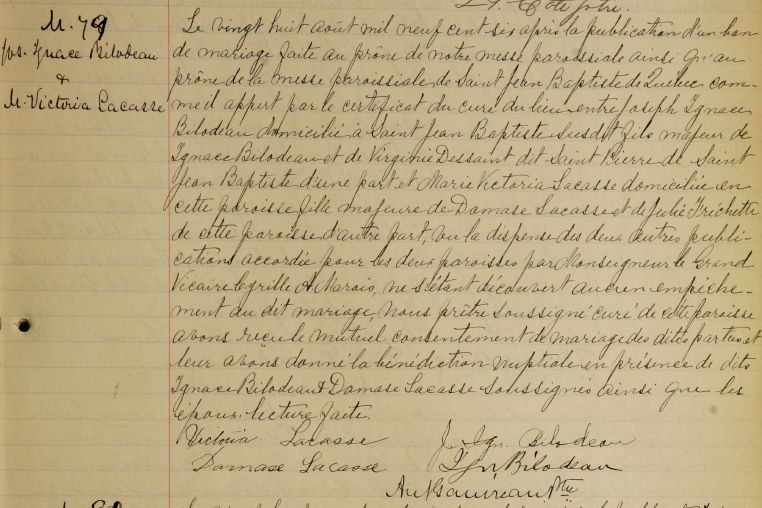 M. 79
Jos. Ignace Bilodeau
&
M. Victoria Lacasse
Le vingt huit août mil neuf cent six après la publication d'un ban
de mariage faite au prône de notre messe paroissiale ainsi qu'au
prône de la messe paroissiale de Saint Jean Baptiste de Quebec com-
me il appert par le certificat du curé du lieu entre Joseph Ignace
Bilodeau domicilié à Saint Jean Baptiste susdit fils majeur de
Ignace Bilodeau et de Virginie Dessaint dit Saint Pierre de Saint
Jean Baptiste d'une part, et Marie Victoria Lacasse domiciliée en
cette paroisse fille majeure de Damase Lacasse et de Julie Fréchette
de cette paroisse d'autre part, vu la dispense des deux autres publi-
cations accordée pour les deux paroisses par Monseigneur le Grand
Vicaire C. A. Marois, ne s'étant découvert aucun empêche-
ment au dit mariage, Nous prêtre soussigné curé de cette paroisse
avons reçu le mutuel consentement de mariage des dites parties et
leur avons donné la bénédiction nuptiale en présence de dits
Ignace Bilodeau & Damase Lacasse soussignés ainsi que les
époux. lecture faite.
Victoria Lacasse J. Ign. Bilodeau
Damase Lacasse Ign Bilodeau
Ptre